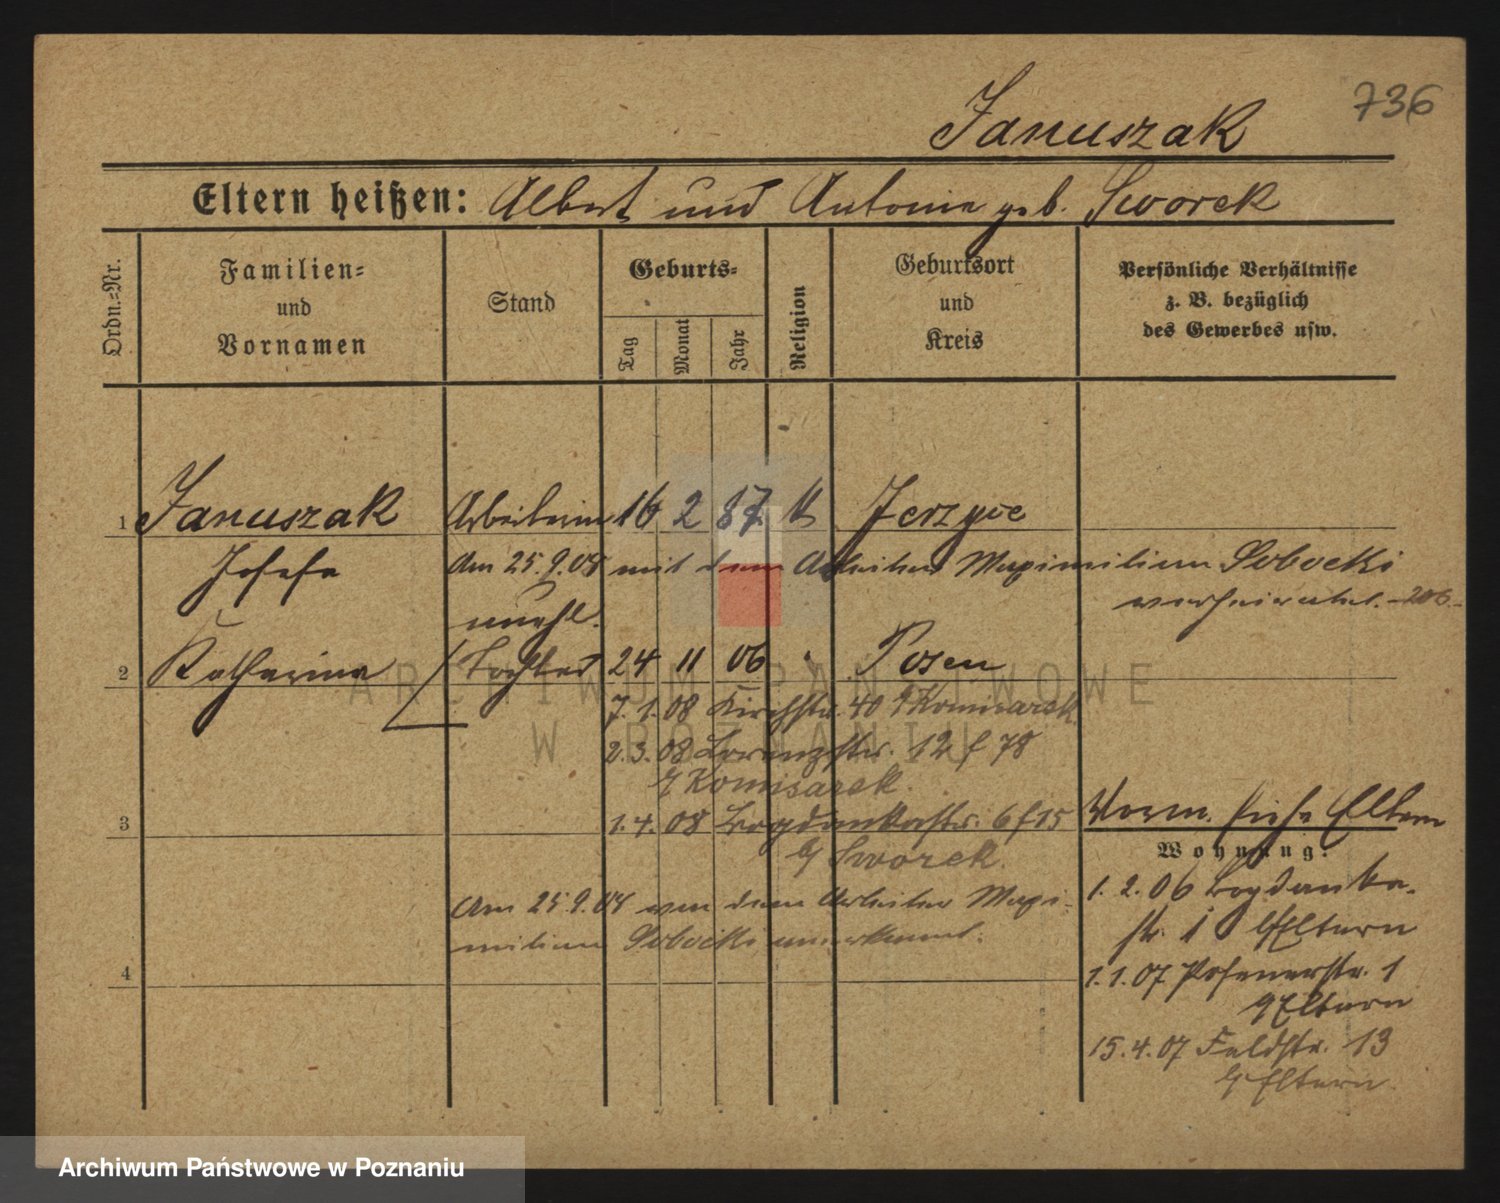 736
Januszak
Eltern heißen: Albert und Antonie geb. Sworek
Ordn.=Nr.
Familien=
und
Vornamen
Stand
Geburts=
Tag
Monat
Jahr
Religion
Geburtsort
und
Kreis
Persönliche Verhältnisse
z. B. bezüglich
des Gewerbes usw.
1 Januszak Arbeiterin 16 2 87 k Jerzyce
Josefa Am 25.9.08 mit dem Arbeiter Maximilian Sobocki
verheiratet. -206-
unehl.
2 Katharina Tochter 24 11 06 " Posen
7. 1. 08 Kirchstr. 40 b/ Komisarek
2. 3. 08 Lorenzstr. 12 f 78
b/ Komisarek.
3
1. 4. 08 Bogdankastr. 6 f 15
b/ Sworek.
Am 25.9.08 von dem Arbeiter Maxi-
milian Sobocki anerkannt.
4
Vorm. siehe Eltern
Wohnung:
1. 2. 06 Bogdanka-
str. 1 b/Eltern
1. 1. 07 Posenerstr. 1
b/Eltern
15. 4. 07 Feldstr. 13
b/ Eltern
ARCHIWUM PAŃSTWOWE
W POZNANIU
Archiwum Państwowe w Poznaniu